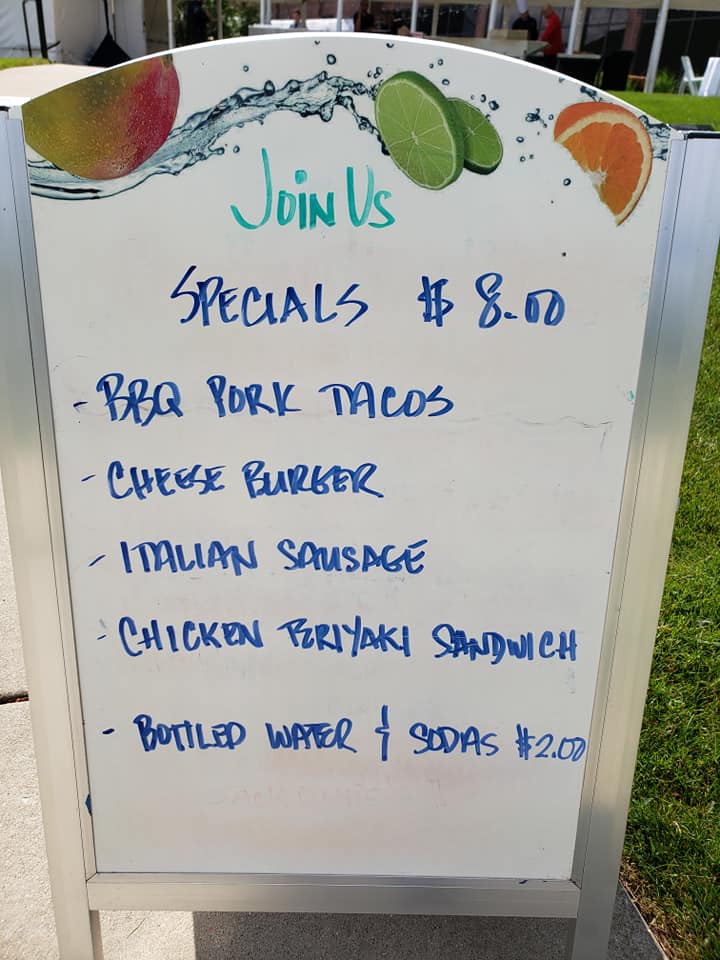 Join Us
SPECIALS $8.00
- BBQ PORK TACOS
- CHEESE BURGER
- ITALIAN SAUSAGE
- CHICKEN TERIYAKI SANDWICH
- BOTTLED WATER & SODAS $2.00